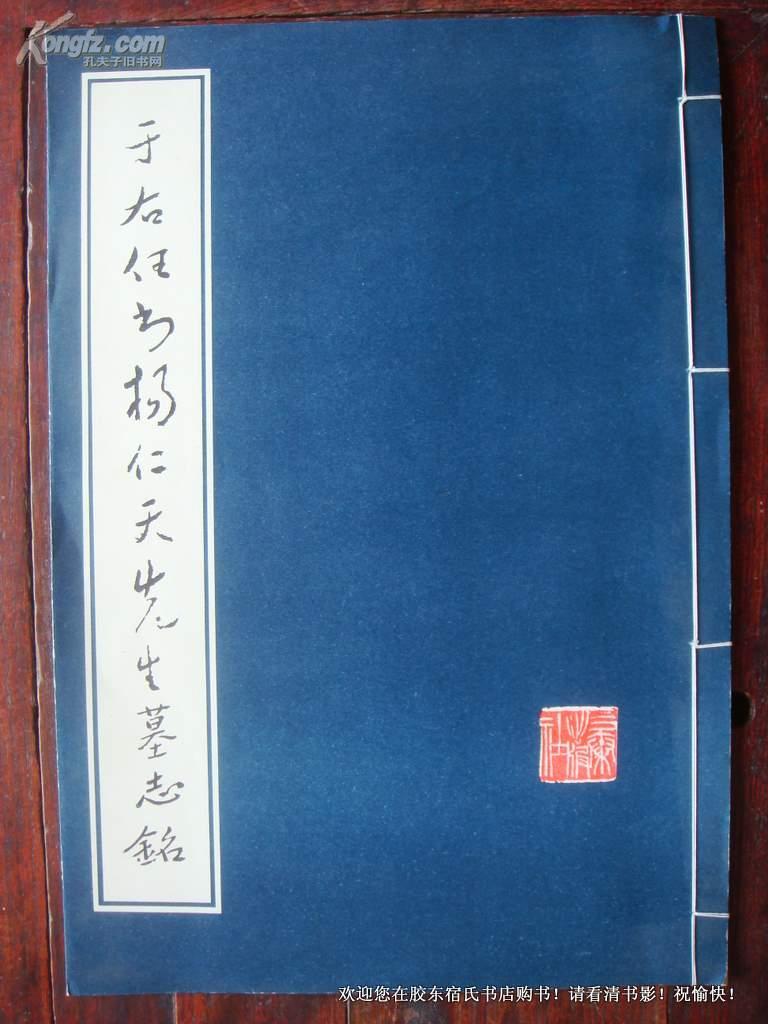 Kongfz.com
孔夫子旧书网
于右任书杨仁天先生墓志銘
欢迎您在胶东宿氏书店购书！请看清书影！祝愉快！